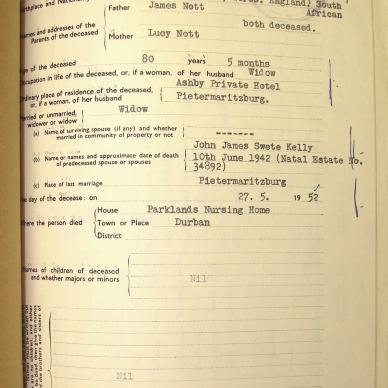 England) South
African
Father James Nott
both deceased.
Names and addresses of the
Parents of the deceased
Mother Lucy Nott
of the deceased 80 years 5 months
Occupation in life of the deceased, or, if a woman, of her husband Widow
Ordinary place of residence of the deceased, Ashby Private Hotel
or, if a woman, of her husband Pietermaritzburg.
Married or unmarried, Widow
widower or widow
(a) Name of surviving spouse (if any) and whether -------
married in community of property or not
John James Swete Kelly
(b) Name or names and approximate date of death 10th June 1942 (Natal Estate No.
of predeceased spouse or spouses 34892)
(c) Place of last marriage Pietermaritzburg
The day of the decease: on 27. 5. 1952
House Parklands Nursing Home
Where the person died Town or Place Durban
District
Names of children of deceased
and whether majors or minors Nil
Nil